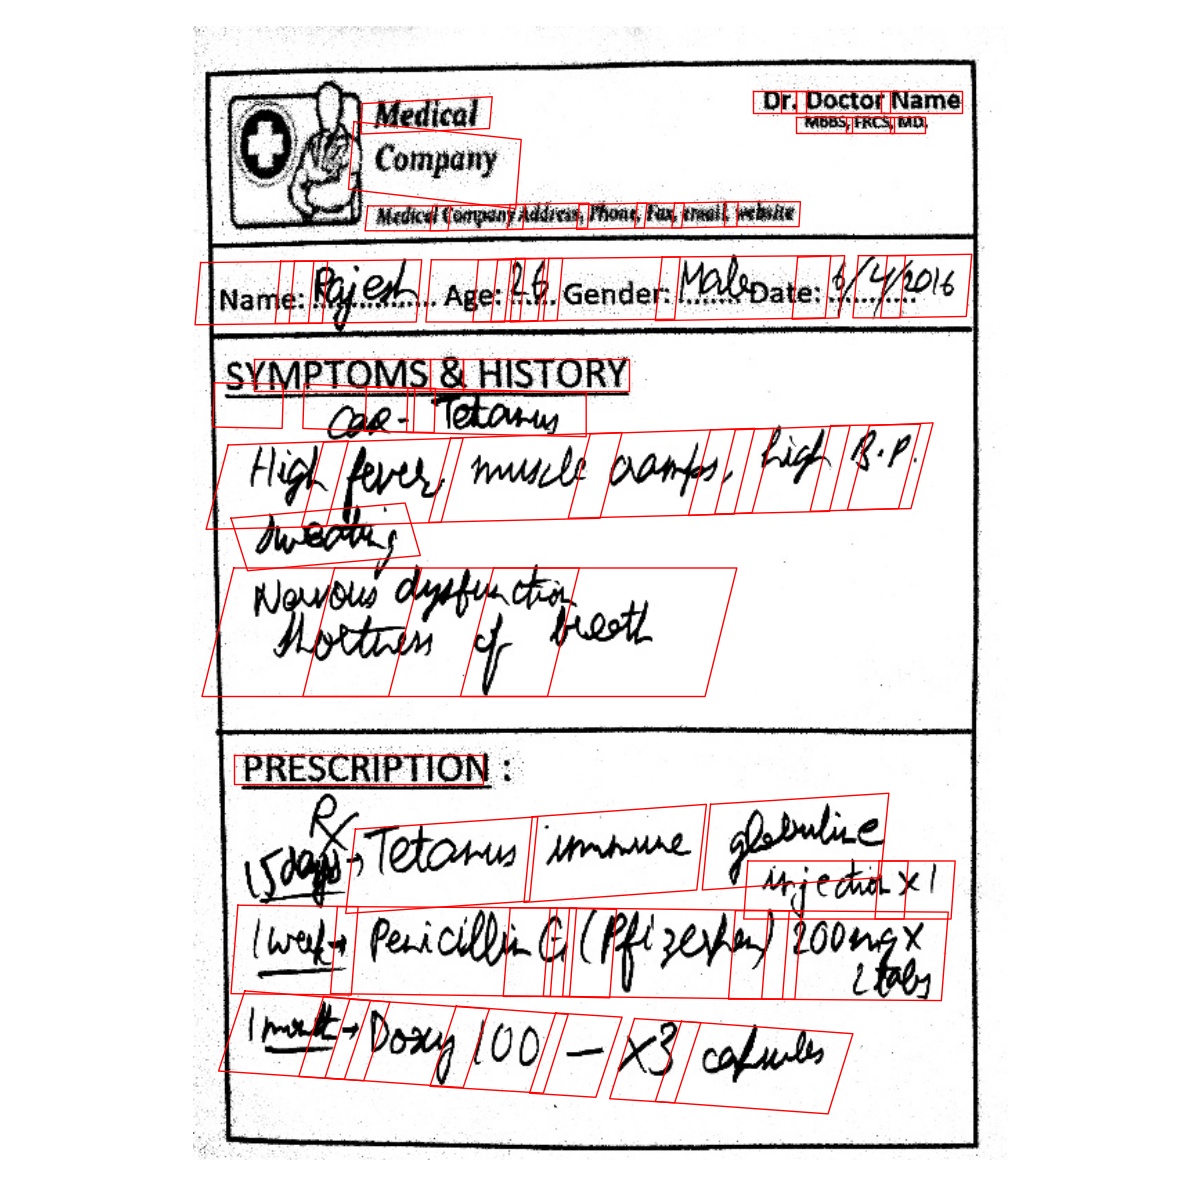 Medical
Company
Dr. Doctor Name
MBBS, FRCS, MD.
Medical Company Address, Phone, Fax, email, website
Name: Rajesh Age: 26 Gender: Male Date: 6/4/2016
SYMPTOMS & HISTORY
- Tetanus
High fever, muscle cramps, high B.P.
Sweating
Nervous dysfunction
Shortness of breath
PRESCRIPTION :
Rx
15 days → Tetanus immune globuline
injection x 1
1 week → Penicillin G (Pfizerpen) 200mg x
2 tabs
1 month → Doxy 100 — x3 capsules